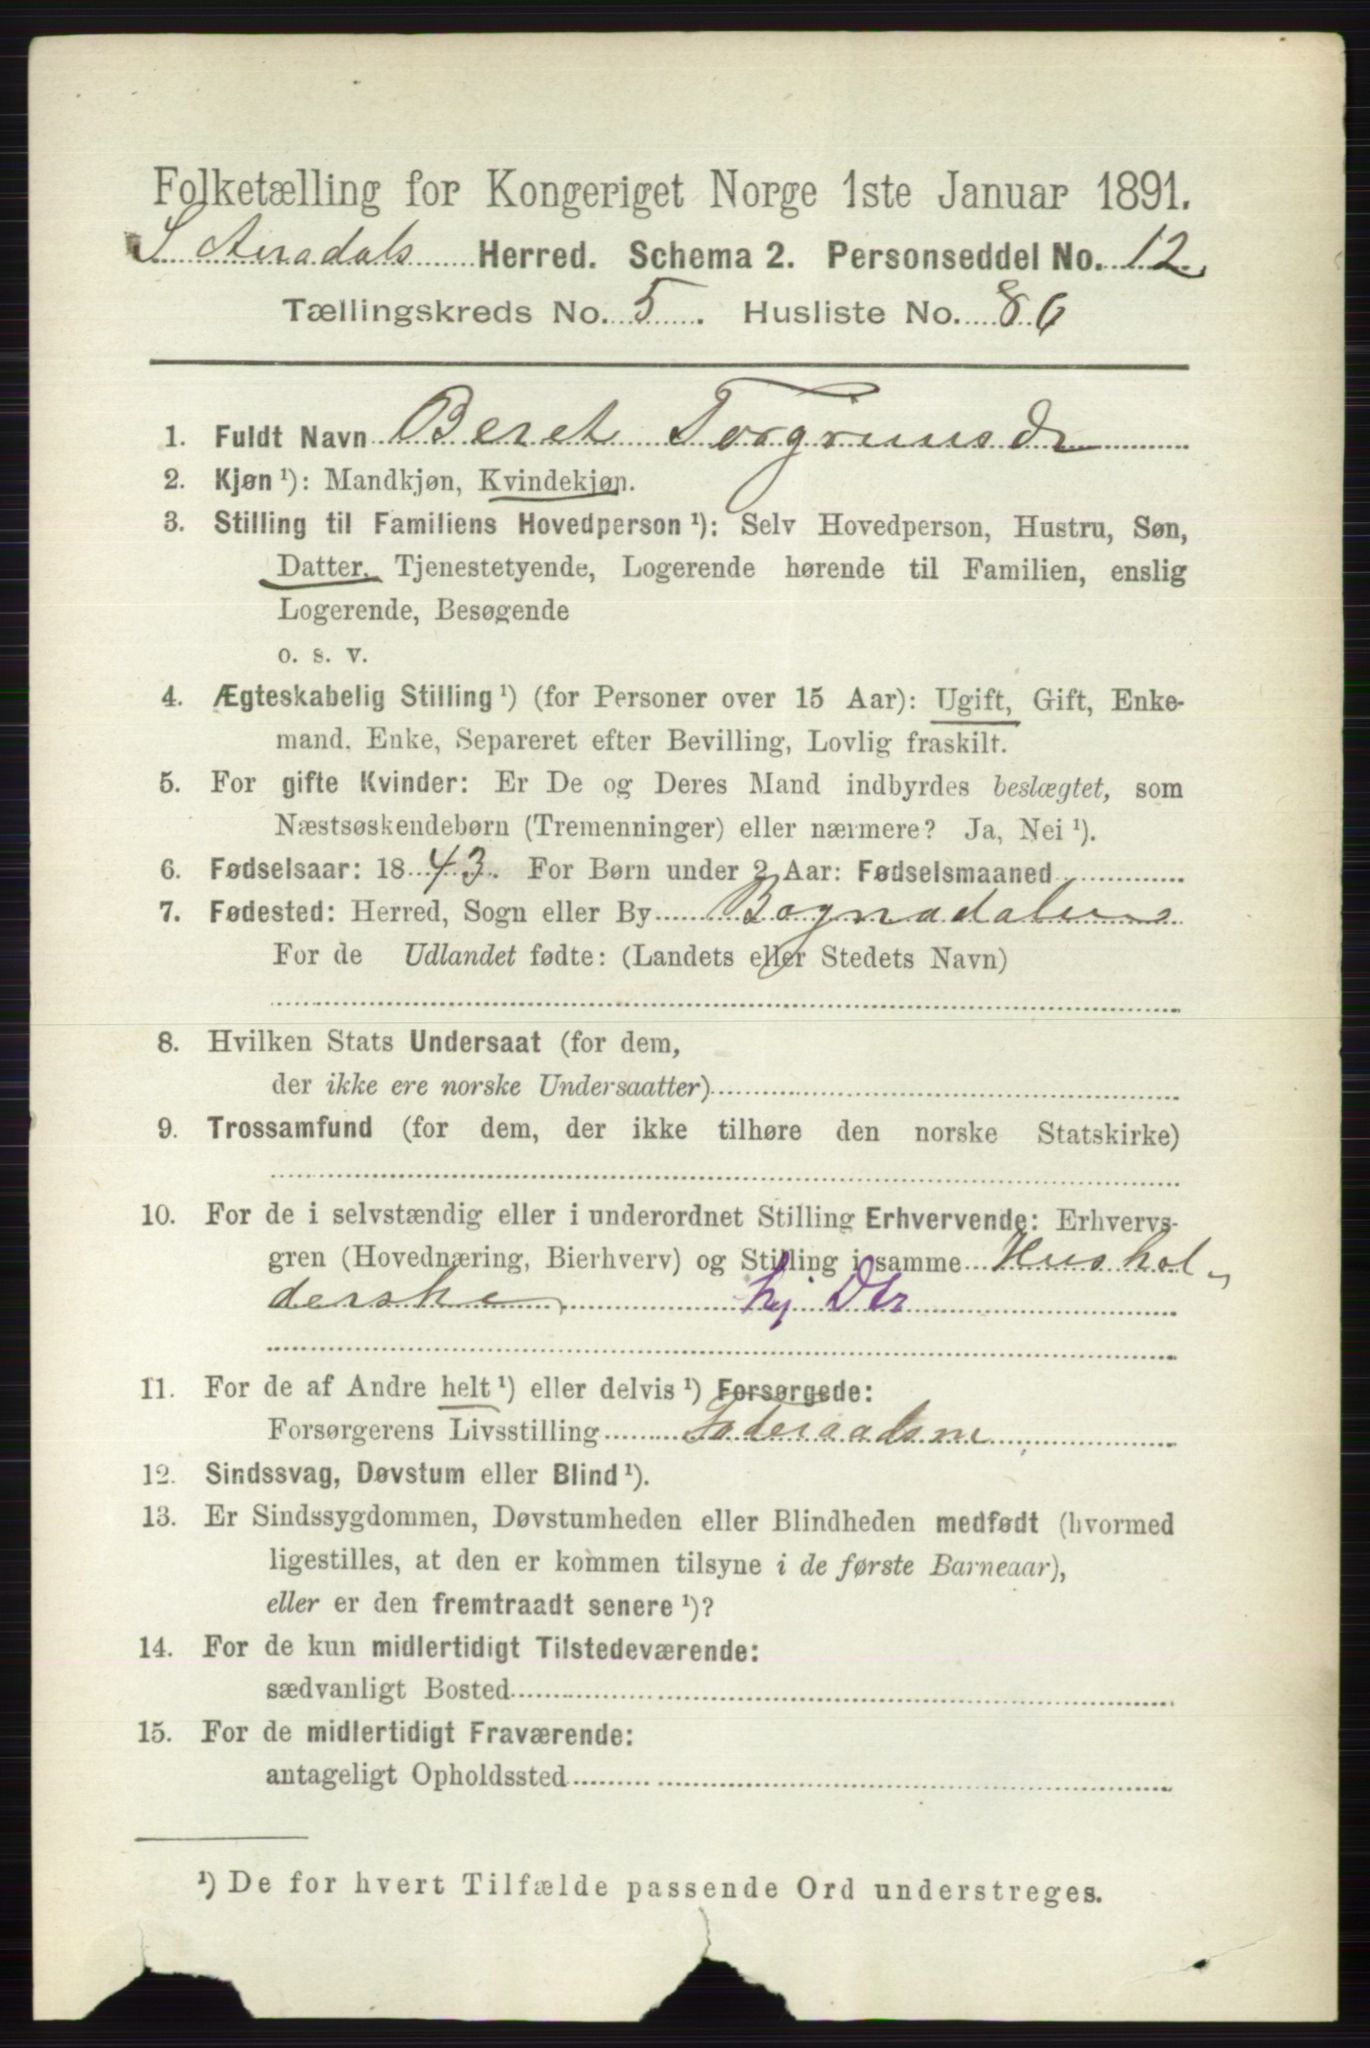 Folketælling for Kongeriget Norge 1ste Januar 1891.
S. Auradals Herred. Schema 2. Personseddel No. 12.
Tællingskreds No. 5. Husliste No. 86
1. Fuldt Navn Beret Torgrimsdr
2. Kjøn ¹): Mandkjøn, Kvindekjøn.
3. Stilling til Familiens Hovedperson ¹): Selv Hovedperson, Hustru, Søn,
Datter, Tjenestetyende, Logerende hørende til Familien, enslig
Logerende, Besøgende
o. s. v.
4. Ægteskabelig Stilling ¹) (for Personer over 15 Aar): Ugift, Gift, Enke-
mand, Enke, Separeret efter Bevilling, Lovlig fraskilt.
5. For gifte Kvinder: Er De og Deres Mand indbyrdes beslægtet, som
Næstsøskendebørn (Tremenninger) eller nærmere? Ja, Nei ¹).
6. Fødselsaar: 1843. For Børn under 2 Aar: Fødselsmaaned
7. Fødested: Herred, Sogn eller By Bagnadalens
For de Udlandet fødte: (Landets eller Stedets Navn)
8. Hvilken Stats Undersaat (for dem,
der ikke ere norske Undersaatter)
9. Trossamfund (for dem, der ikke tilhøre den norske Statskirke)
10. For de i selvstændig eller i underordnet Stilling Erhvervende: Erhvervs-
gren (Hovednæring, Bierhverv) og Stilling i samme Hushol-
derske, hj Dtr
11. For de af Andre helt ¹) eller delvis ¹) Forsørgede:
Forsørgerens Livsstilling Føderaadsm
12. Sindssvag, Døvstum eller Blind ¹).
13. Er Sindssygdommen, Døvstumheden eller Blindheden medfødt (hvormed
ligestilles, at den er kommen tilsyne i de første Barneaar),
eller er den fremtraadt senere ¹)?
14. For de kun midlertidigt Tilstedeværende:
sædvanligt Bosted
15. For de midlertidigt Fraværende:
antageligt Opholdssted
¹) De for hvert Tilfælde passende Ord understreges.